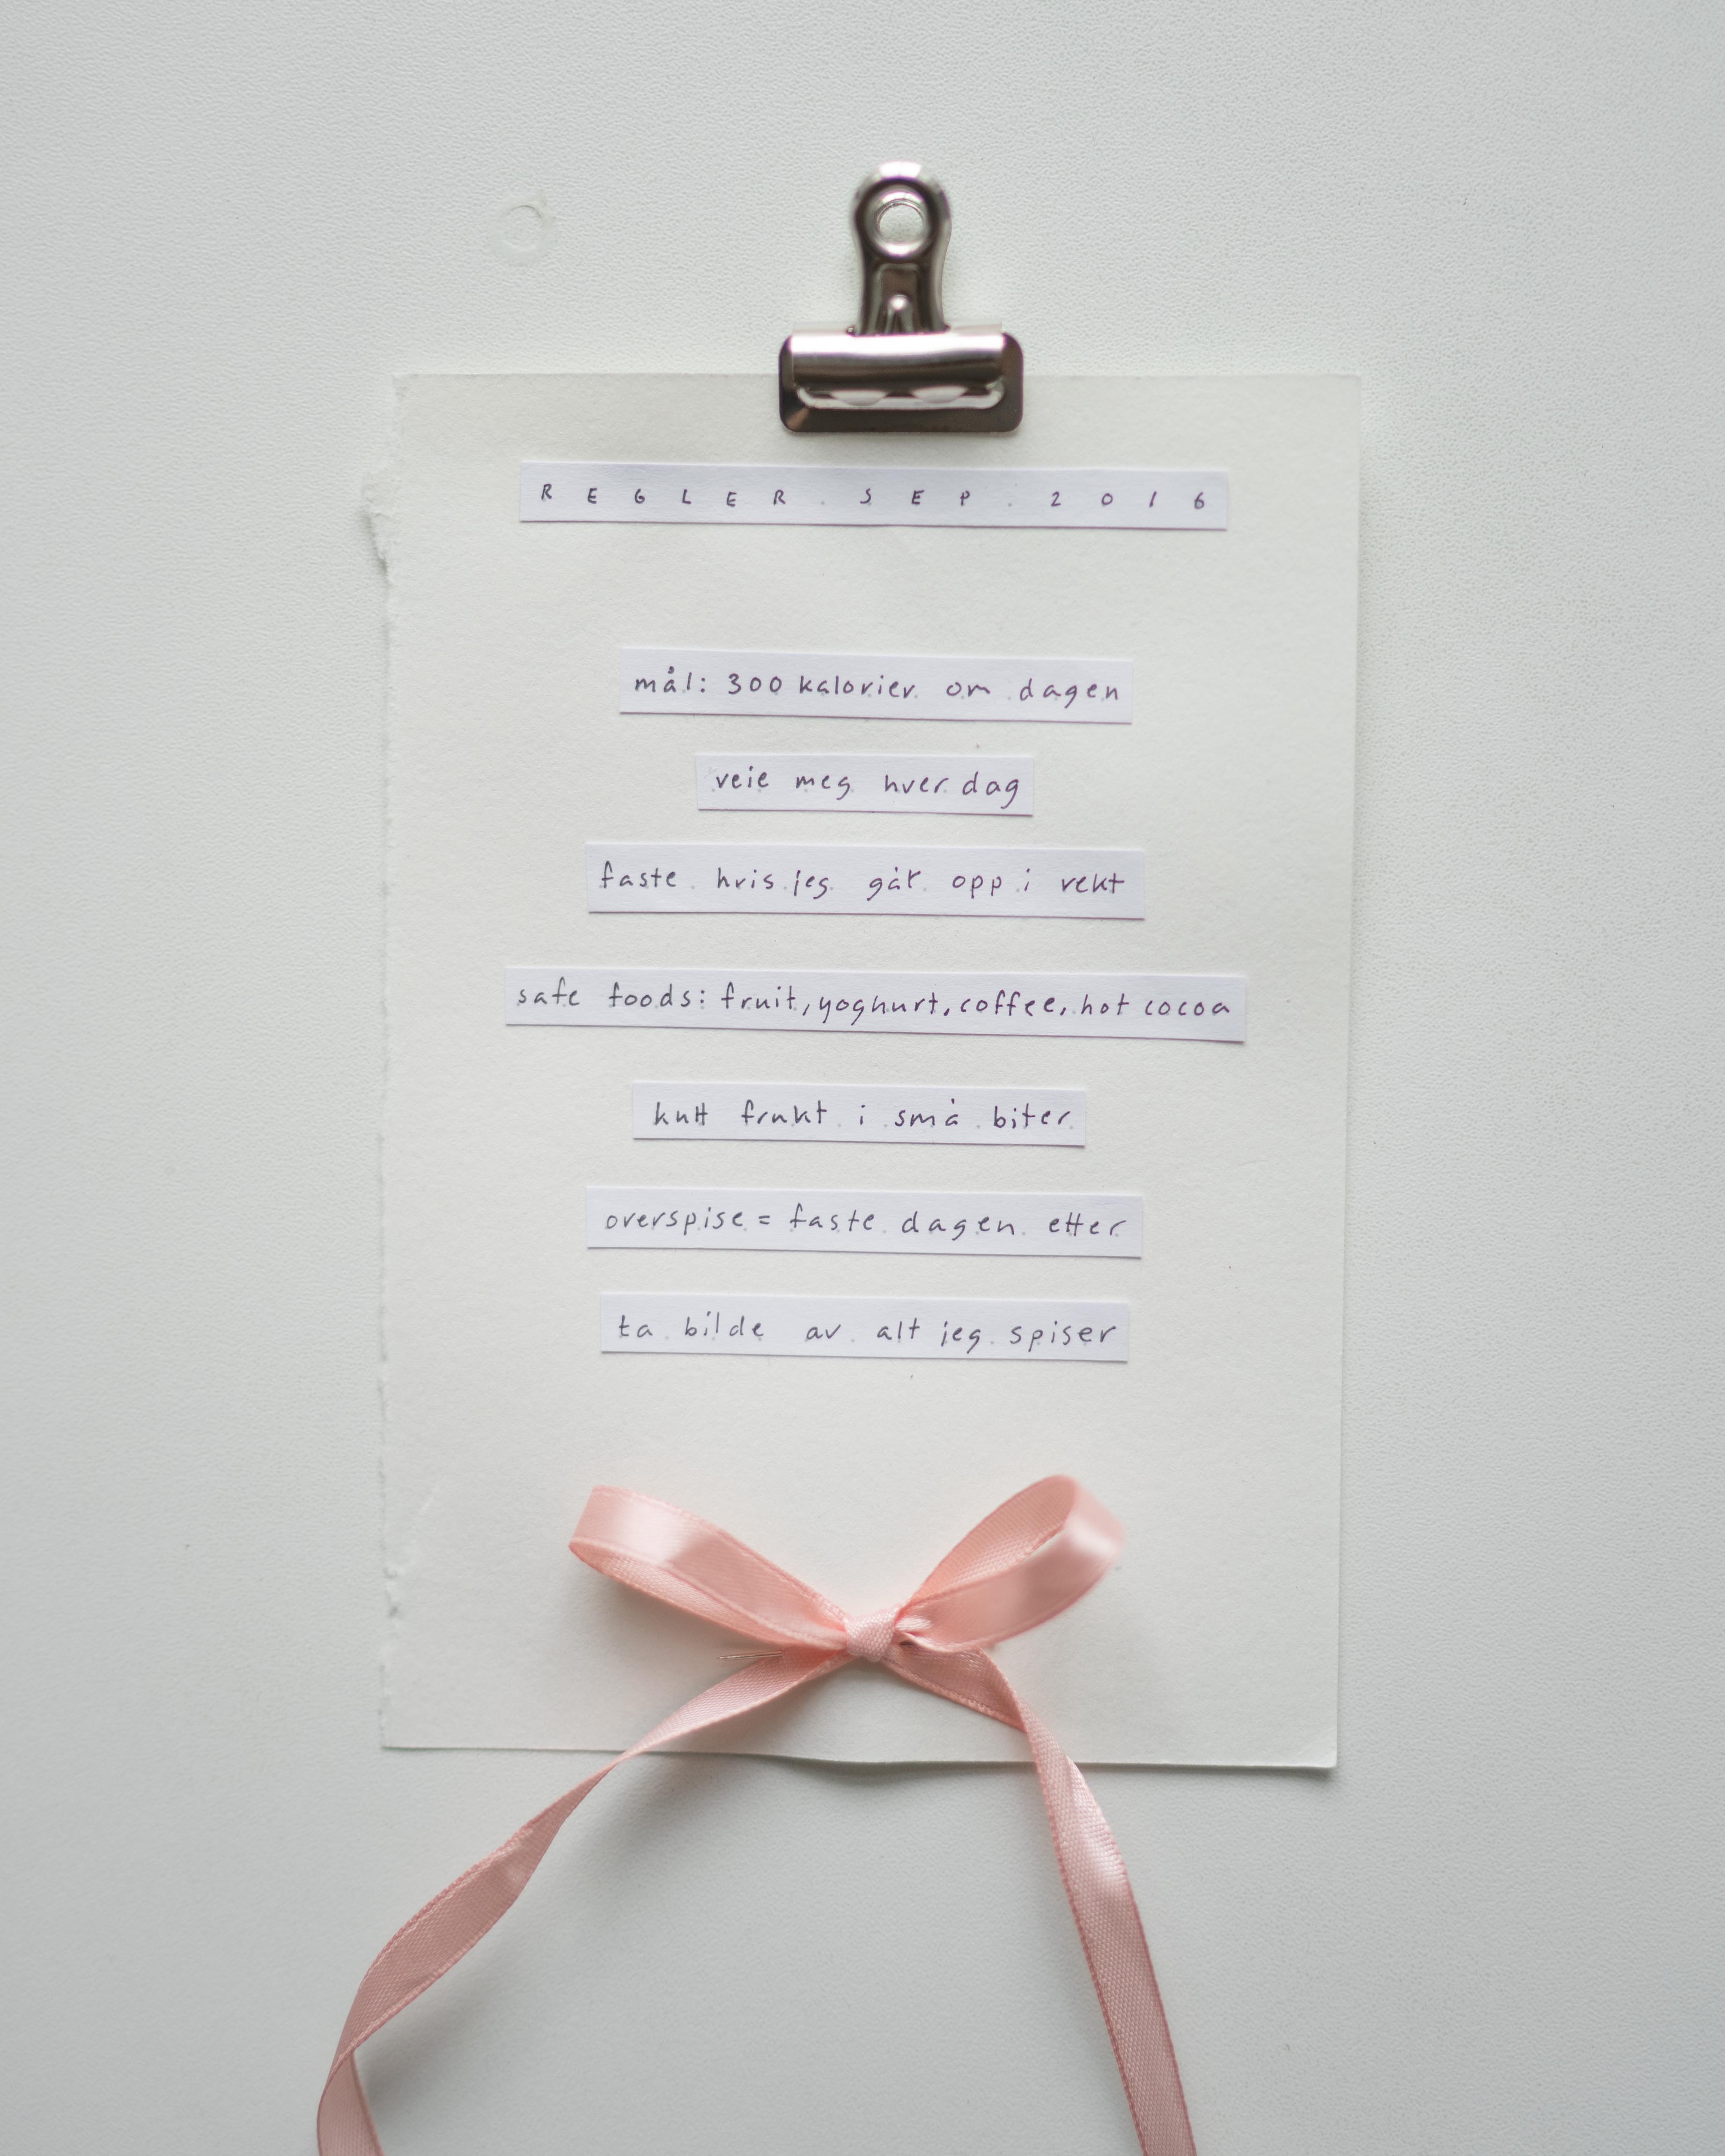 REGLER.SEP.2016
mål: 300 kalorier om dagen
veie meg hver dag
faste hvis jeg går opp i vekt
safe foods: fruit, yoghurt, coffee, hot cocoa
kutt frukt i små biter
overspise = faste dagen etter
ta bilde av alt jeg spiser